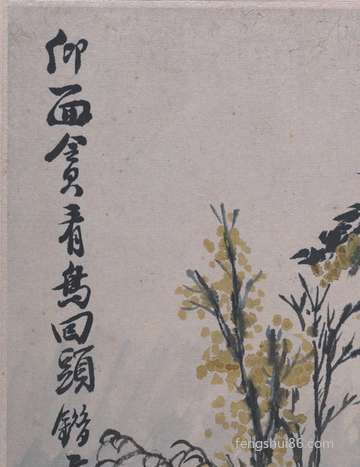 仰面貪看鳥回頭錯
fengshui86.com